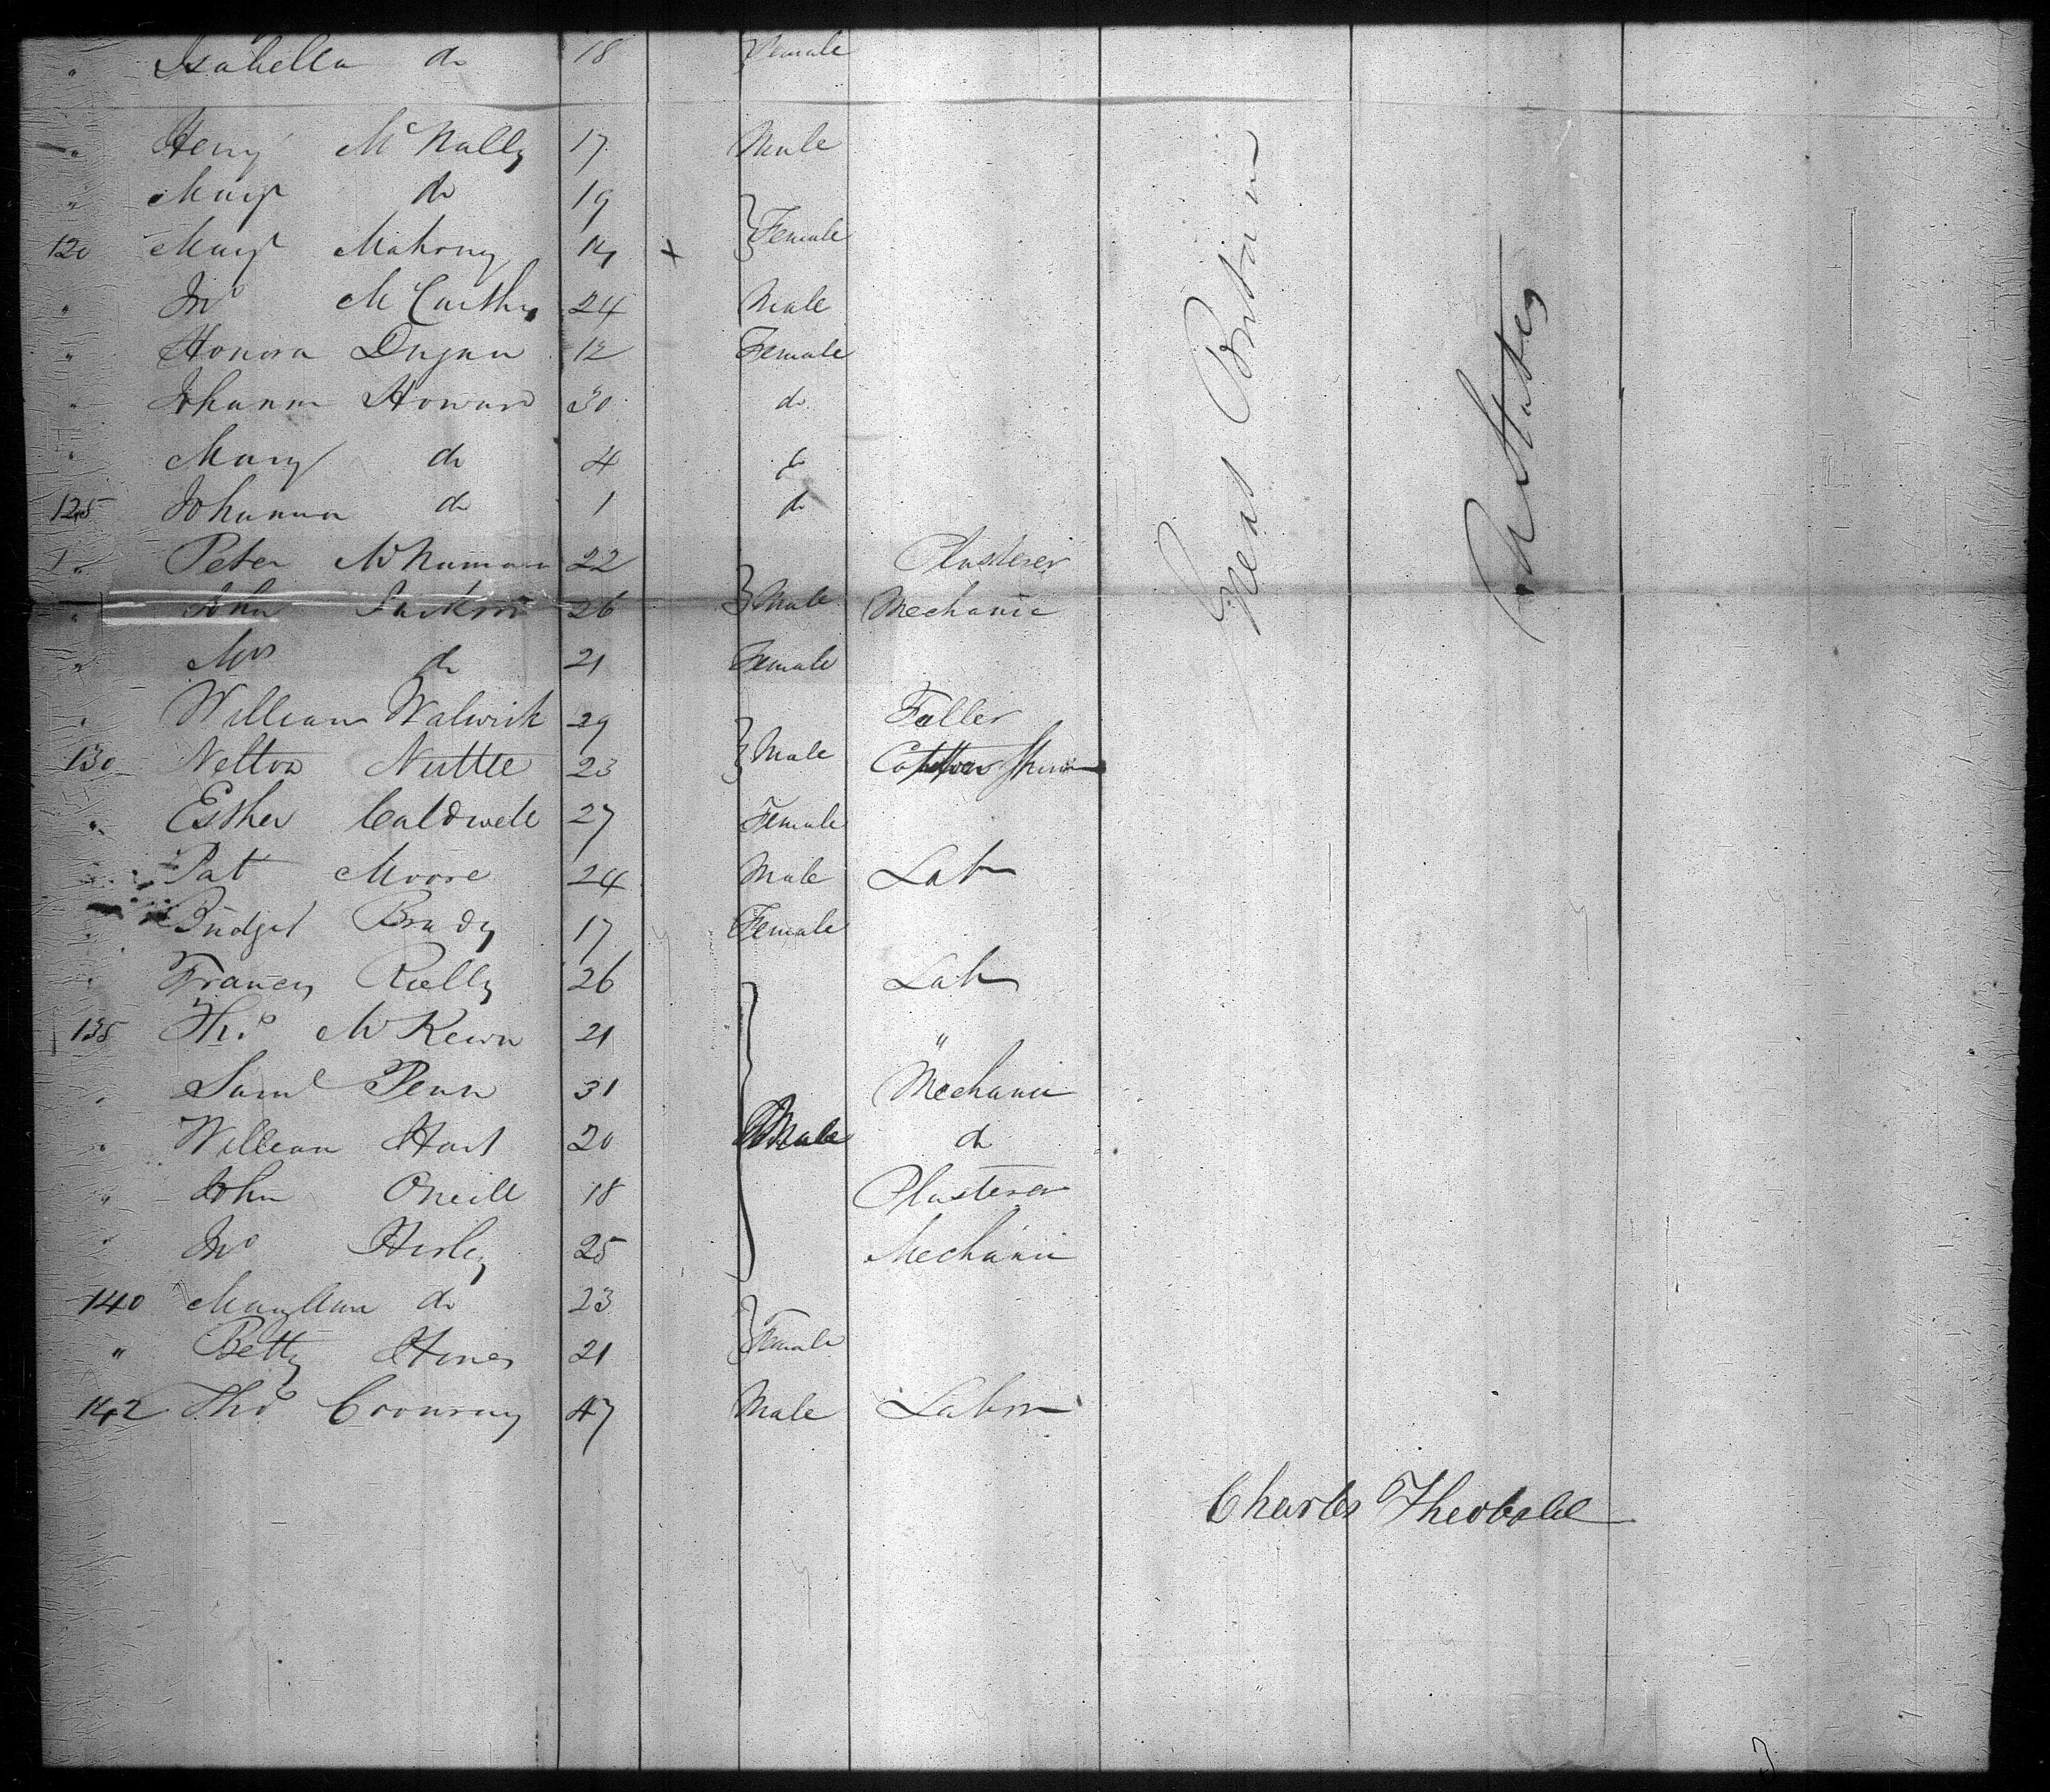 " Isabella do 18 Female
" Henry McNally 17 Male
" Mary do 19
120 Mary Mahony 14 x } Female
" Jno McCarthy 24 Male
" Honora Dugan 12 Female
" Johanna Howard 30 do
" Mary do 4 do
125 Johanna do 1 do
" Peter McNamara 22 Plasterer
" John Jackson 26 } Male Mechanic
" Mrs do 21 Female
" William Walwick 29 Fuller
130 Nelton Nuttle 23 } Male Cotton Spin
" Esther Caldwell 27 Female
" Pat Moore 24 Male Labr
" Bridget Brady 17 Female
" Francis Rielly 26 Labr
135 Thos McKewn 21 "
" Saml Penn 31 Mechanic
" William Hart 20 } Male do
" John Oneill 18 Plasterer
" Jno Hurley 25 Mechanic
140 MaryAnn do 23
" Betty Hines 21 } Female
142 Thos 47 Male Labor
Great Britain
U States
Charles Theobald